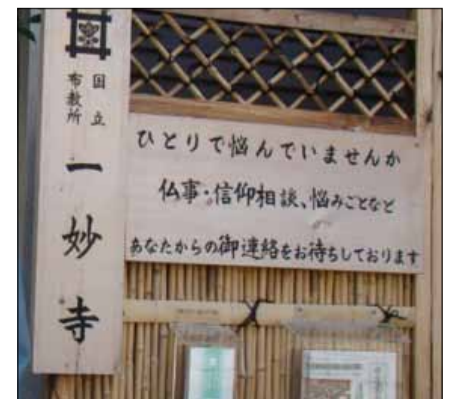 国立
布教所
一妙寺
ひとりで悩んでいませんか
仏事・信仰相談、悩みごとなど
あなたからの御連絡をお待ちしております